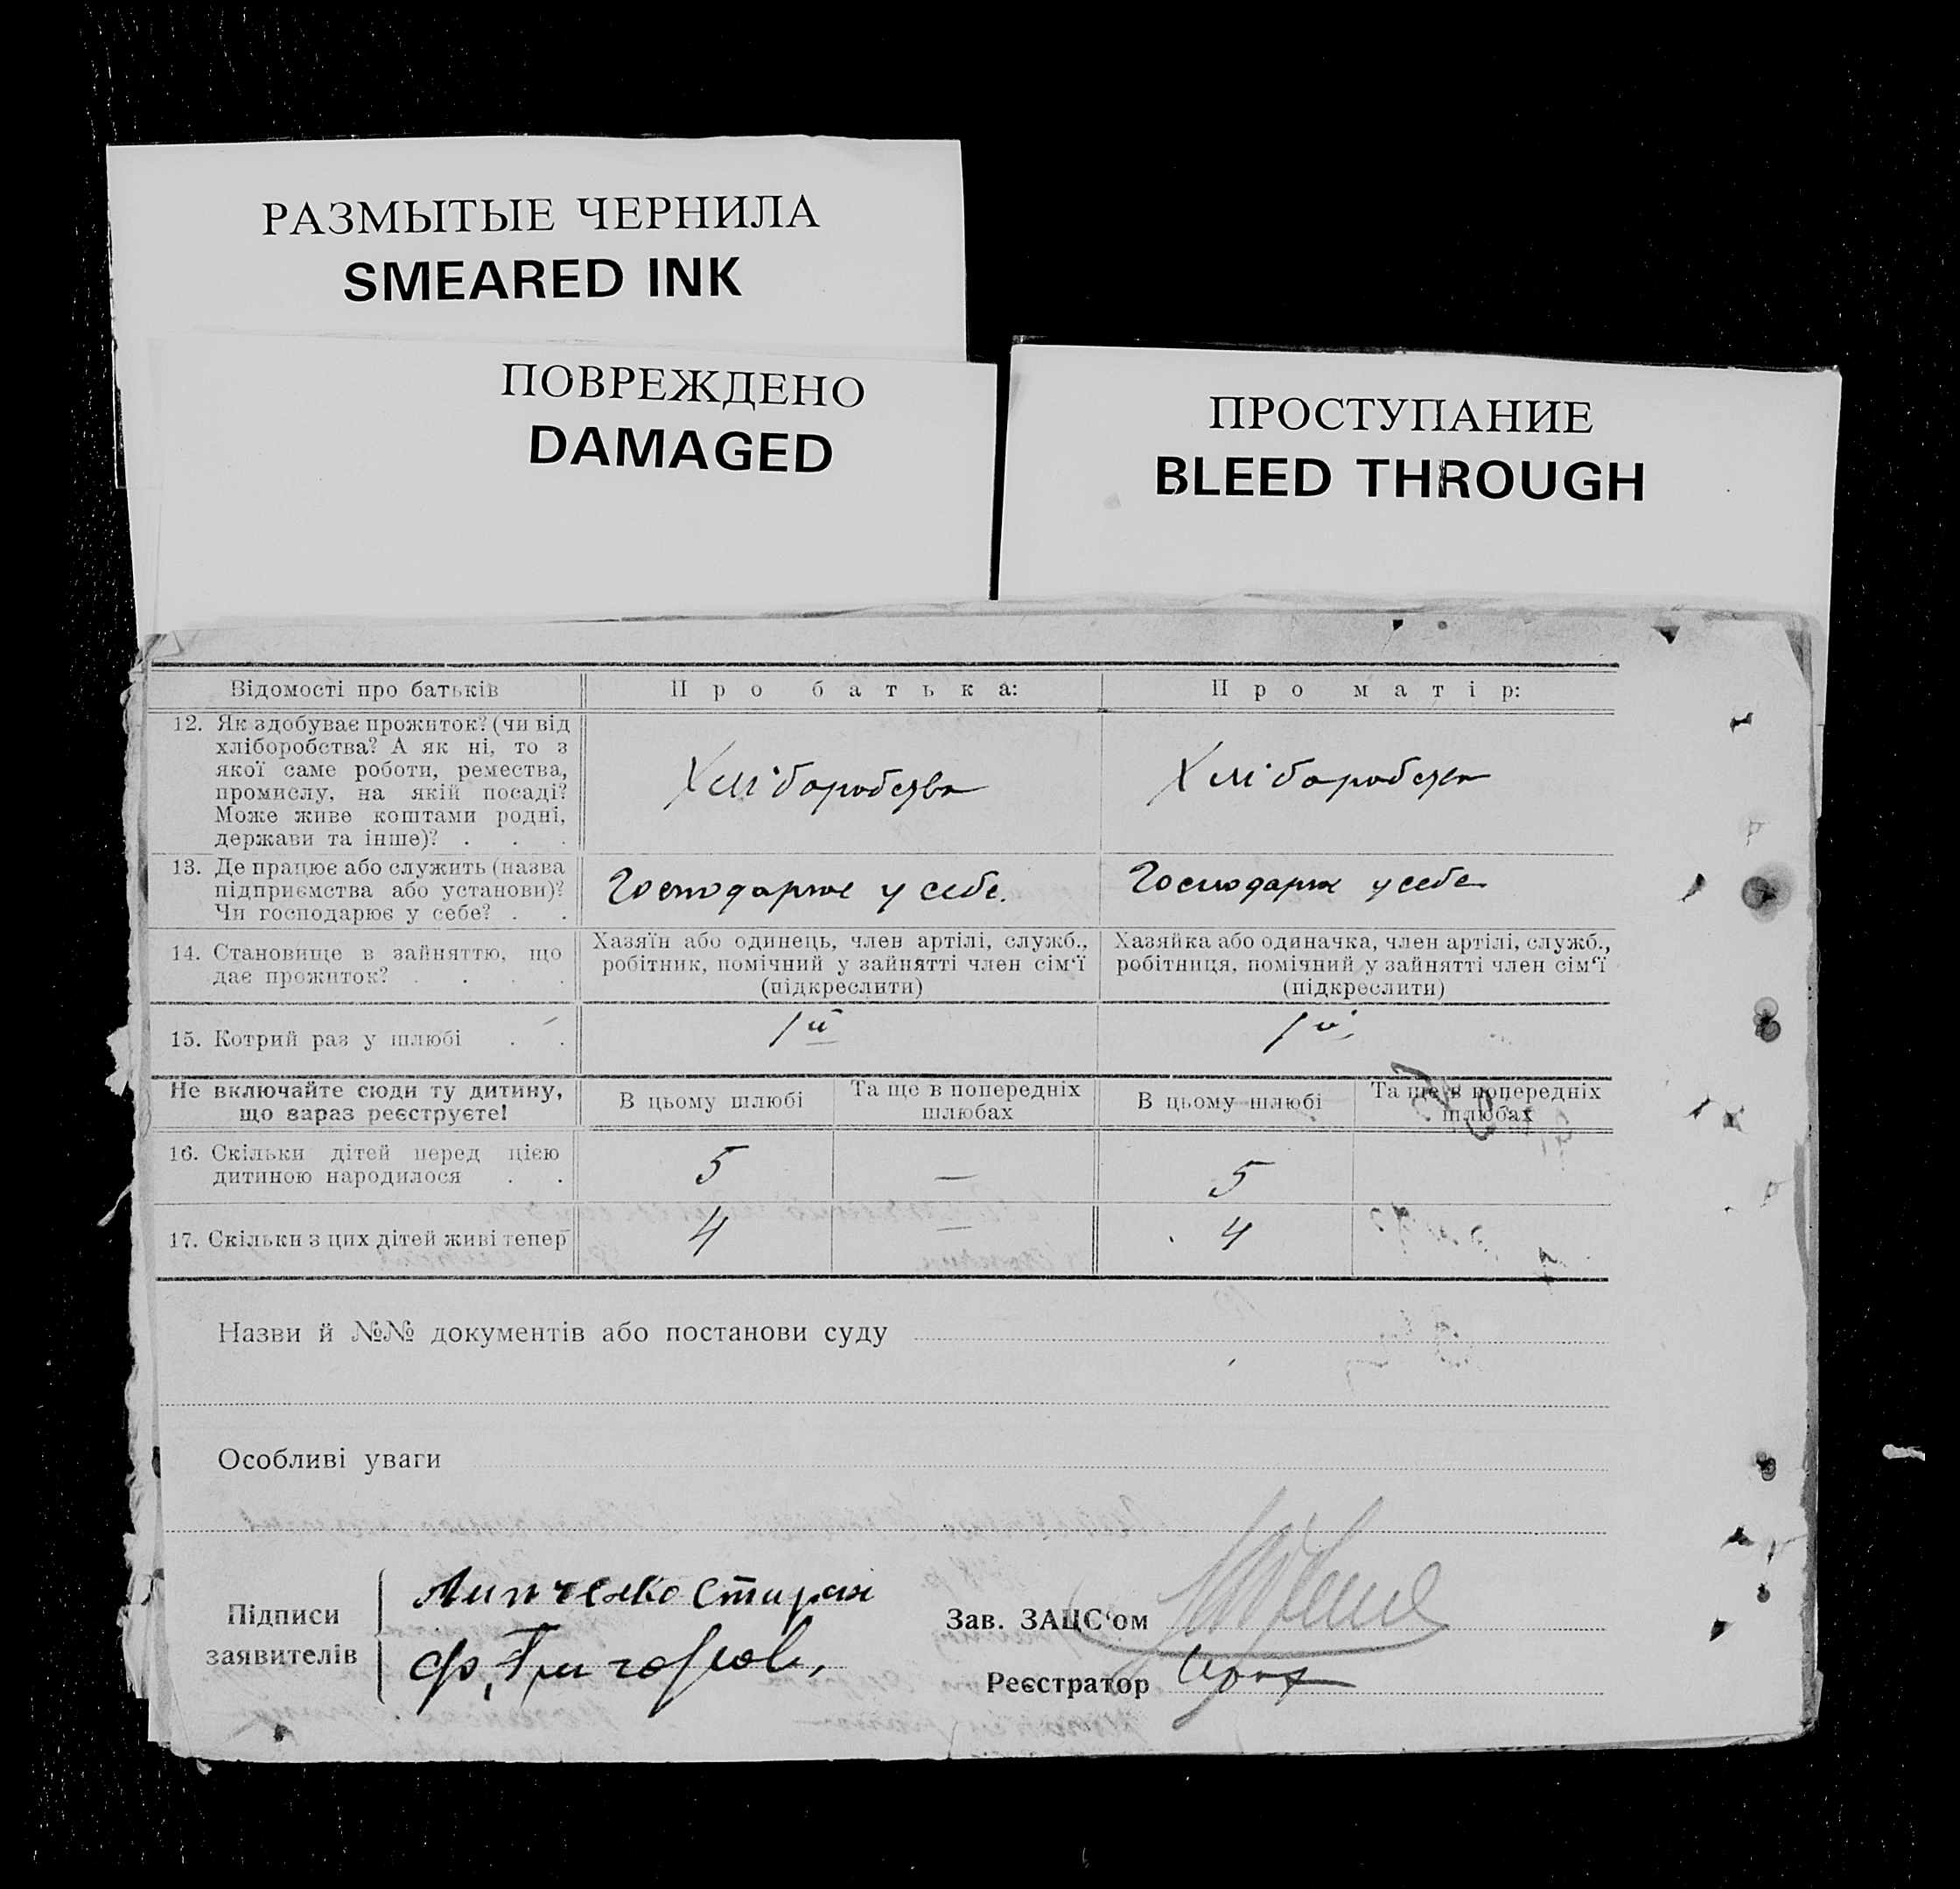 РАЗМЫТЫЕ ЧЕРНИЛА
SMEARED INK
ПОВРЕЖДЕНО
DAMAGED
ПРОСТУПАНИЕ
BLEED THROUGH
Відомості про батьків
Про батька:
Про матір:
12. Як здобуває прожиток? (чи від
хліборобства? А як ні, то з
якої саме роботи, ремества,
промислу, на якій посаді?
Може живе коштами родні,
держави та інше)? . . .
Хліборобства
Хліборобства
13. Де працює або служить (назва
підприємства або установи)?
Чи господарює у себе? . .
Господарює у себе.
Господарює у себе
14. Становище в зайняттю, що
дає прожиток? . . . .
Хазяїн або одинець, член артілі, служб.,
робітник, помічний у зайнятті член сім‘ї
(підкреслити)
Хазяйка або одиначка, член артілі, служб.,
робітниця, помічний у зайнятті член сім‘ї
(підкреслити)
15. Котрий раз у шлюбі . .
1й
1й
Не включайте сюди ту дитину,
що зараз реєструєте!
В цьому шлюбі
Та ще в попередніх
шлюбах
В цьому шлюбі
Та ще в попередніх
шлюбах
16. Скільки дітей перед цією
дитиною народилося . .
5
—
5
17. Скільки з цих дітей живі тепер
4
—
4
Назви й №№ документів або постанови суду
Особливі уваги
Підписи
заявителів
Зав. ЗАЦС‘ом
Реєстратор